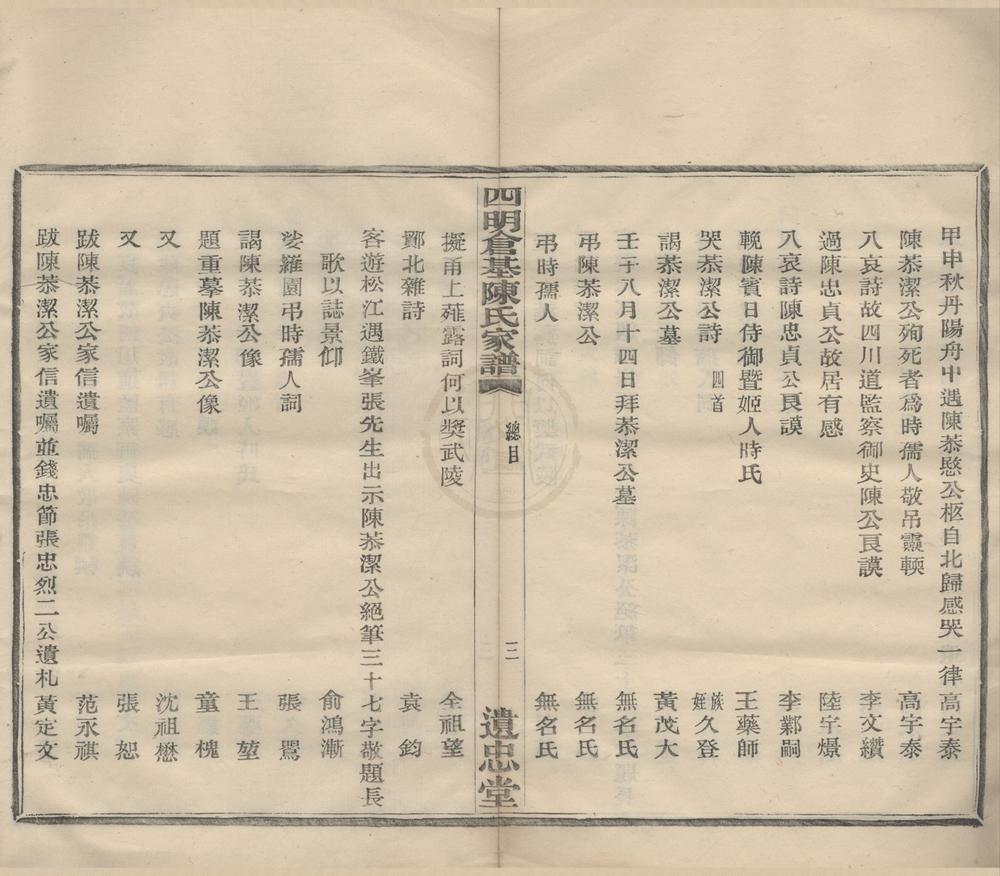 甲申秋丹陽舟中遇陳恭愍公柩自北歸感哭一律 高宇泰
陳恭潔公殉死者為時孺人敬吊靈輭 高宇泰
八哀詩故四川道監察御史陳公良謨 李文纘
過陳忠貞公故居有感 陸宇㷆
八哀詩陳忠貞公良謨 李鄴嗣
輓陳賓日侍御暨姬人時氏 王藥師
哭恭潔公詩 四首 族姪久登
謁恭潔公墓 黃茂大
壬子八月十四日拜恭潔公墓 無名氏
弔陳恭潔公 無名氏
弔時孺人 無名氏
四明倉基陳氏家譜 總目 三 遺忠堂
擬甬上薤露詞何以獎武陵 全祖望
鄞北雜詩 袁鈞
客遊松江遇鐵峯張先生出示陳恭潔公絕筆三十七字敬題長
歌以誌景仰 俞鴻漸
娑羅園弔時孺人詞 張翯
謁陳恭潔公像 王堃
題重摹陳恭潔公像 童槐
又 沈祖懋
又 張恕
跋陳恭潔公家信遺囑 范永祺
跋陳恭潔公家信遺囑並錢忠節張忠烈二公遺札 黃定文